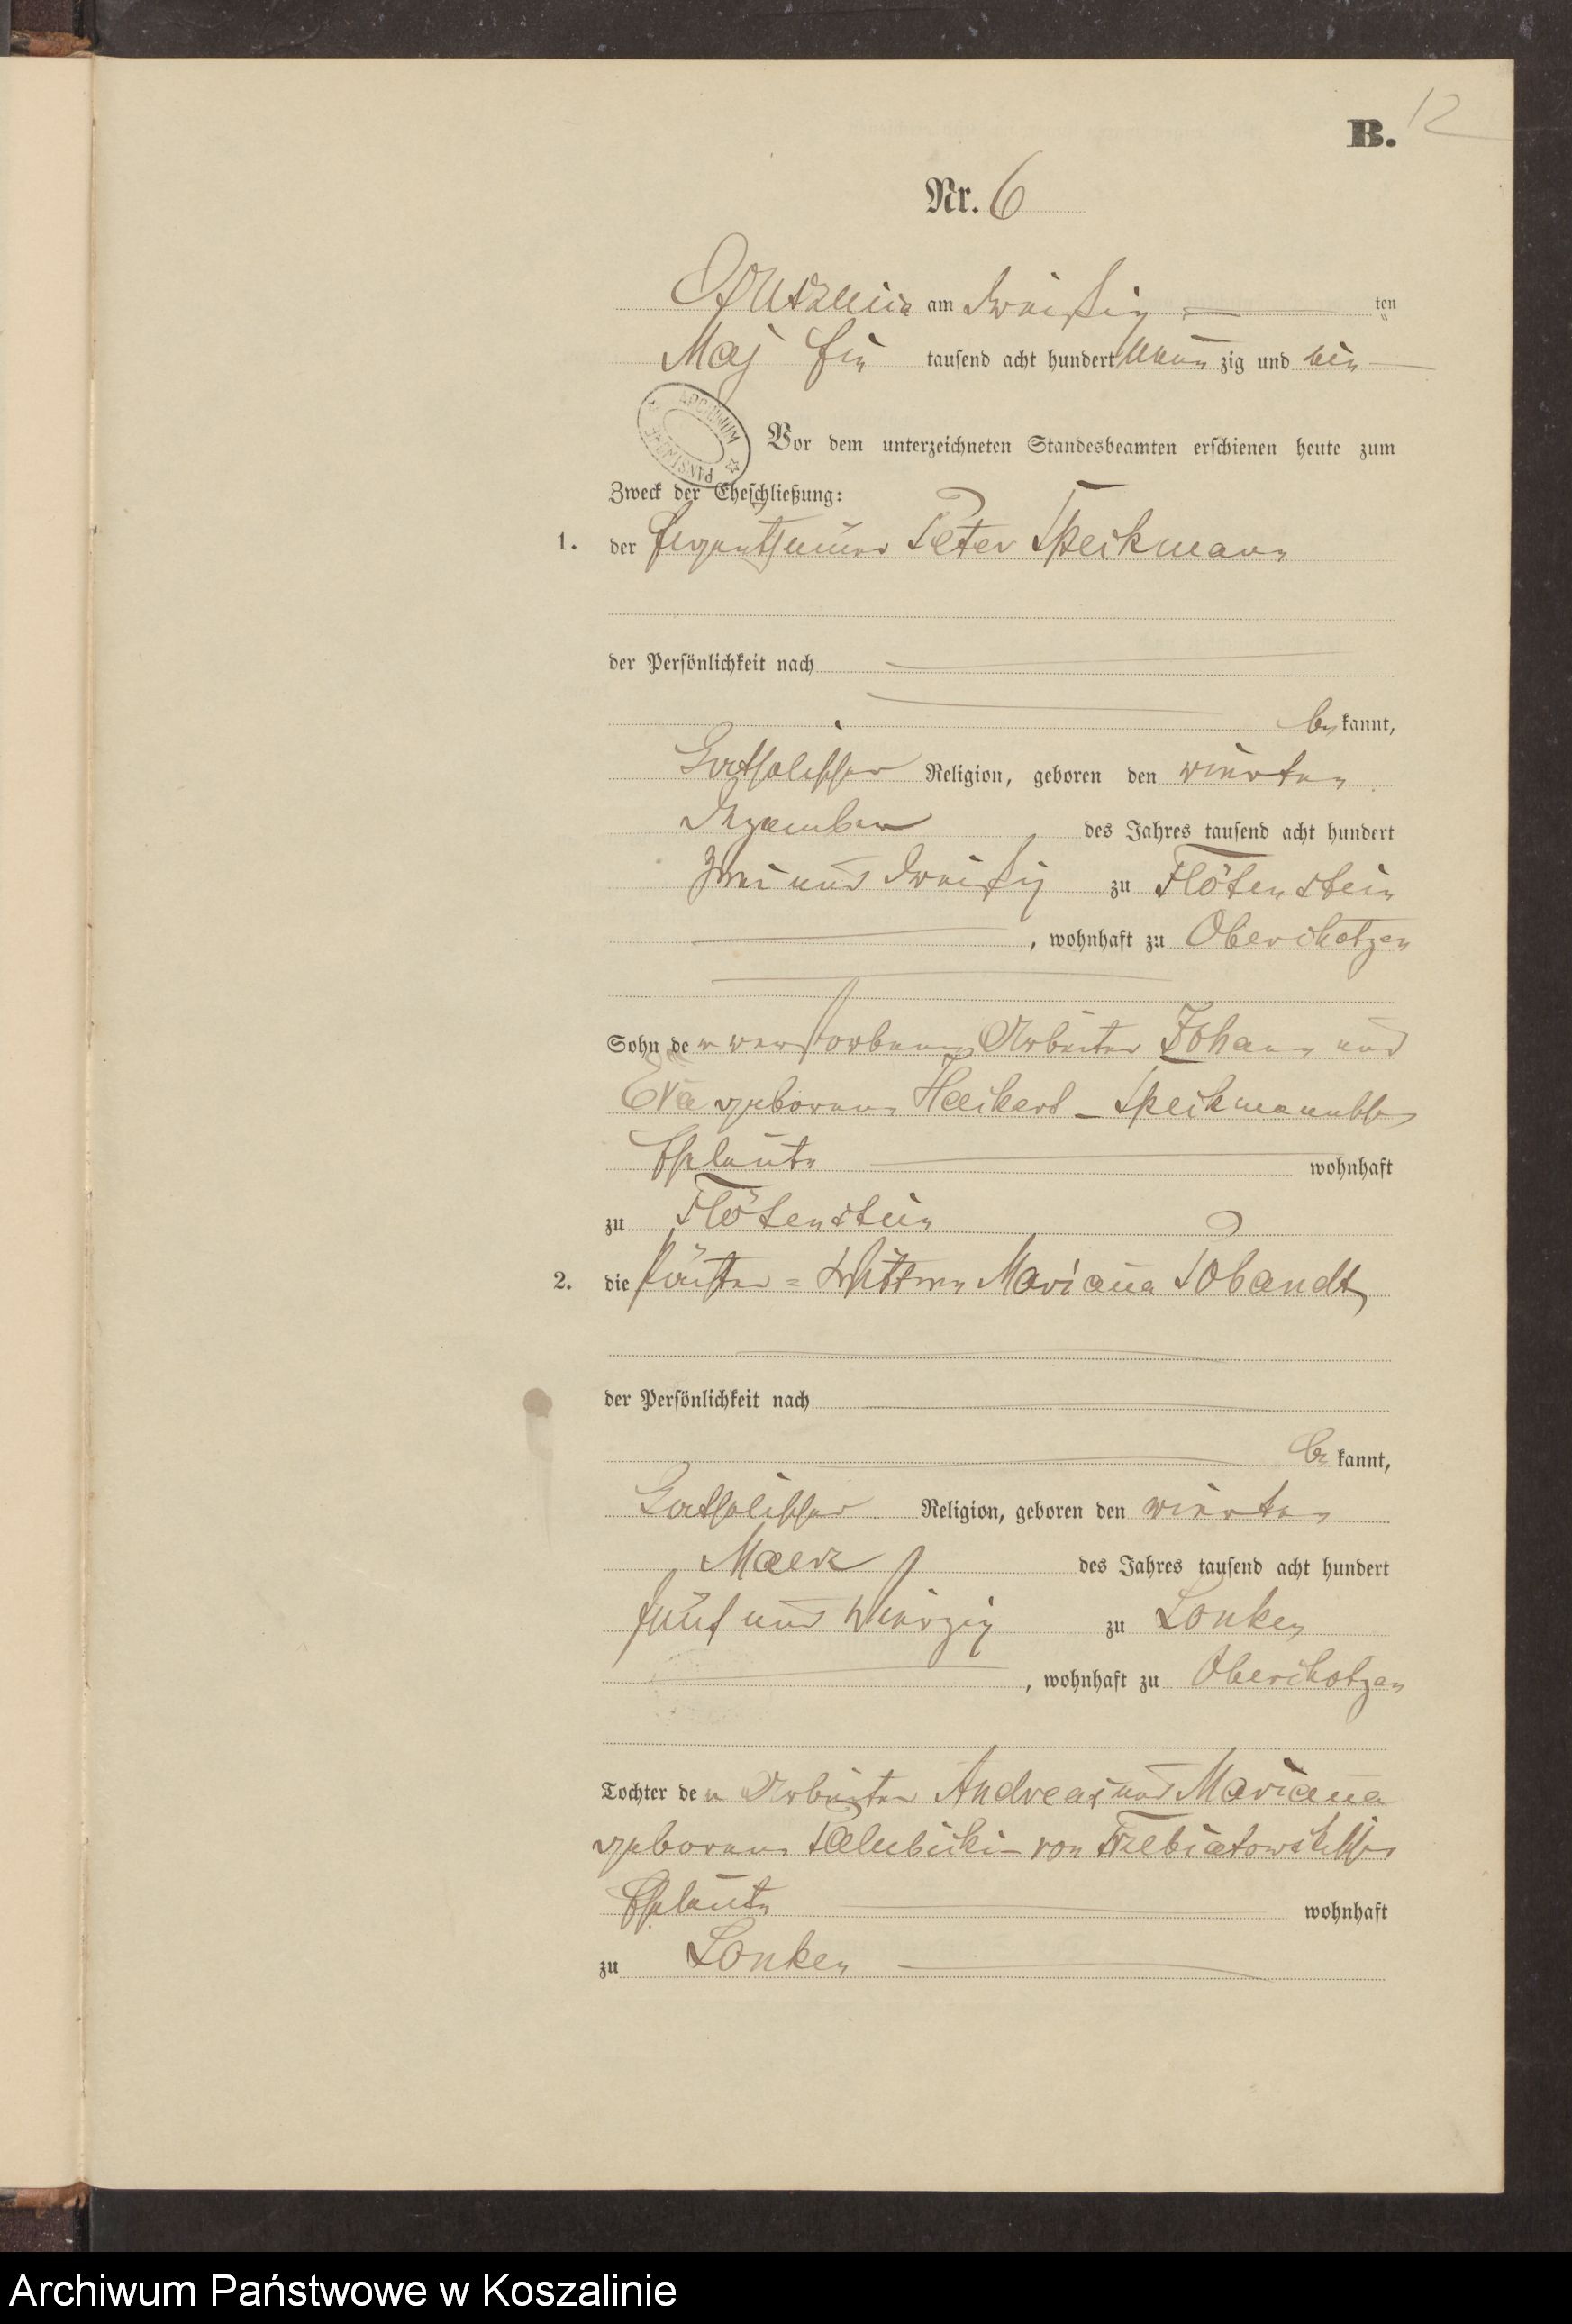 B. 12
Nr. 6
am dreißig ten
Maj Ein tausend acht hundert neun zig und ein
ARCHIWUM PAŃSTWOWE
Vor dem unterzeichneten Standesbeamten erschienen heute zum
Zweck der Eheschließung:
1. der Eigenthümer Peter Speikmann
der Persönlichkeit nach
be kannt,
katholischer Religion, geboren den vierten
Dezember des Jahres tausend acht hundert
zwei und dreißig zu Flötenstein
, wohnhaft zu Oberschotzen
Sohn der verstorbenen Arbeiter Johann und
Eva geborene Speikmannsche
Eheleute wohnhaft
zu Flötenstein
2. die Wittwe Mariana Pobandt,
der Persönlichkeit nach
be kannt,
katholischer Religion, geboren den vierten
Maerz des Jahres tausend acht hundert
fünf und vierzig zu Lonken
, wohnhaft zu Oberschotzen
Tochter de n Arbeiter Andreas und Mariana
geborene Palubicki- von Trzebiatowskische
Eheleute wohnhaft
zu Lonken
Archiwum Państwowe w Koszalinie